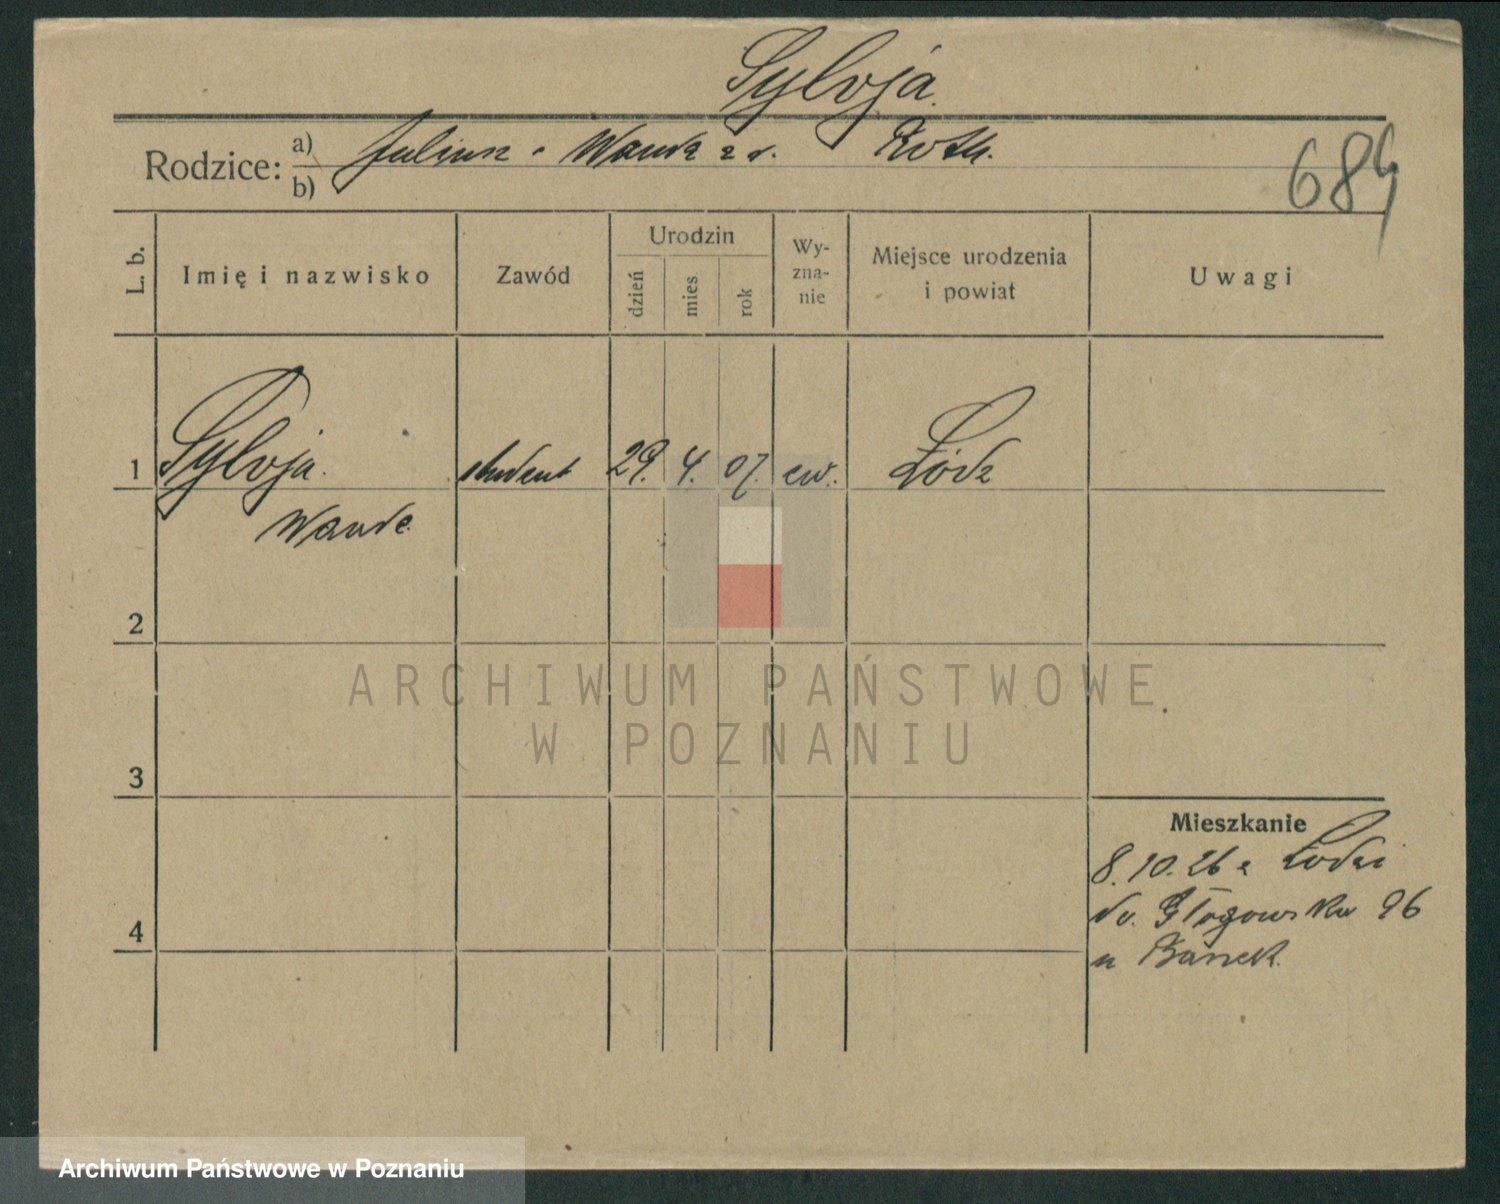 Sylvja
Rodzice: a) Juliusz - Wanda z d. Roth.
b)
684
L. b.
Imię i nazwisko
Zawód
Urodzin
dzień
mies
rok
Wy-
zna-
nie
Miejsce urodzenia
i powiat
Uwagi
1 Sylvja student 29. 4. 07. ew. Łódz
Wanda
2
3
4
Mieszkanie
8.10.26 z Łodzi
do. Głogowska 96
u Banek.
ARCHIWUM PAŃSTWOWE
W POZNANIU
Archiwum Państwowe w Poznaniu